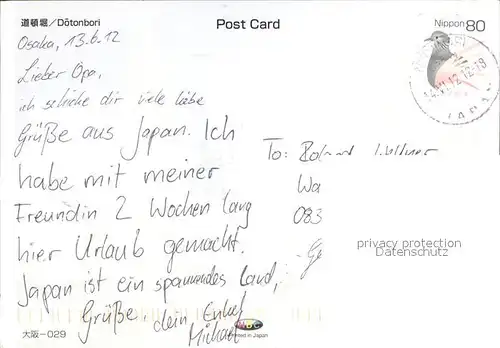 道頓堀/Dōtonbori
Post Card
Nippon 80
Osaka, 13.6.12
Lieber Opa,
ich schicke dir viele liebe
Grüße aus Japan. Ich
habe mit meiner
Freundin 2 Wochen lang
hier Urlaub gemacht.
Japan ist ein spannendes Land,
Grüße, dein Enkel
Michael
To: Roland
Wa
083
Ge
privacy protection
Datenschutz
JAPAN
大阪-029
Printed in Japan